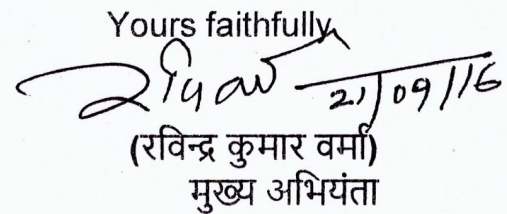 Yours faithfully,
21/09/16
(रविन्द्र कुमार वर्मा)
मुख्य अभियंता